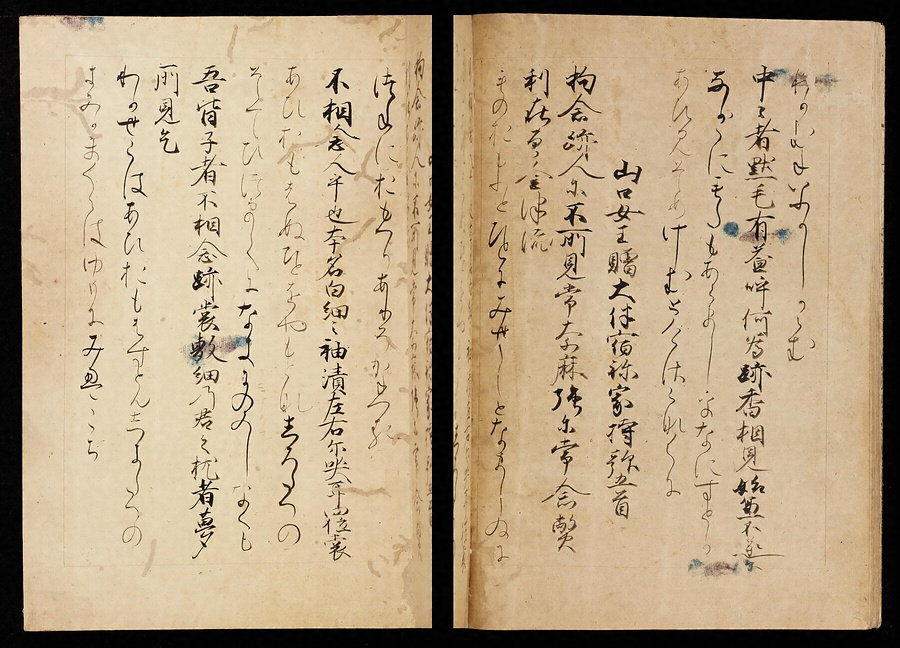 わかむねいふかしからむ
中〻者黙毛有益呼何為跡香相見始兼不遂
なかなかにもたもあらましをなにすとか
山口女王贈大伴宿祢家持謌五首
物念跡人尓不所見常奈麻強尓常念弊
利在曽金津流
ものおもふとひとにみせしとなましひに
つねにおもへりありそかねつる
不相念人乎也本名白細之袖漬左右尓哭耳四泣裳
あひおもはぬひとをやもとなしろたへの
そてひつまてになきのみしなくも
吾背子者不相念跡裳敷細乃君之枕者夢
所見乞
わかせこはあひおもはすともしきたへの
きみかまくらはゆめにみえこそ